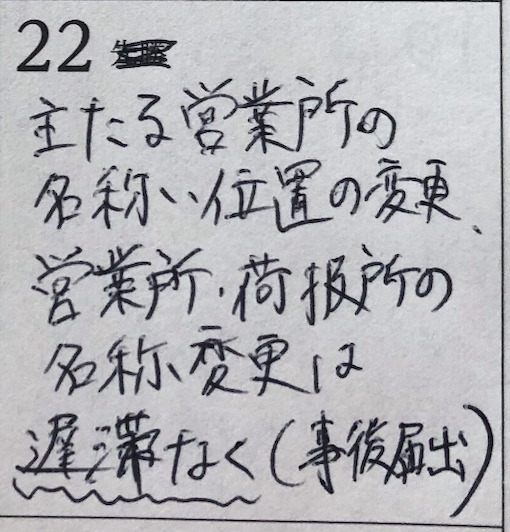 22
主たる営業所の
名称、位置の変更、
営業所、荷扱所の
名称変更は
遅滞なく(事後届出)